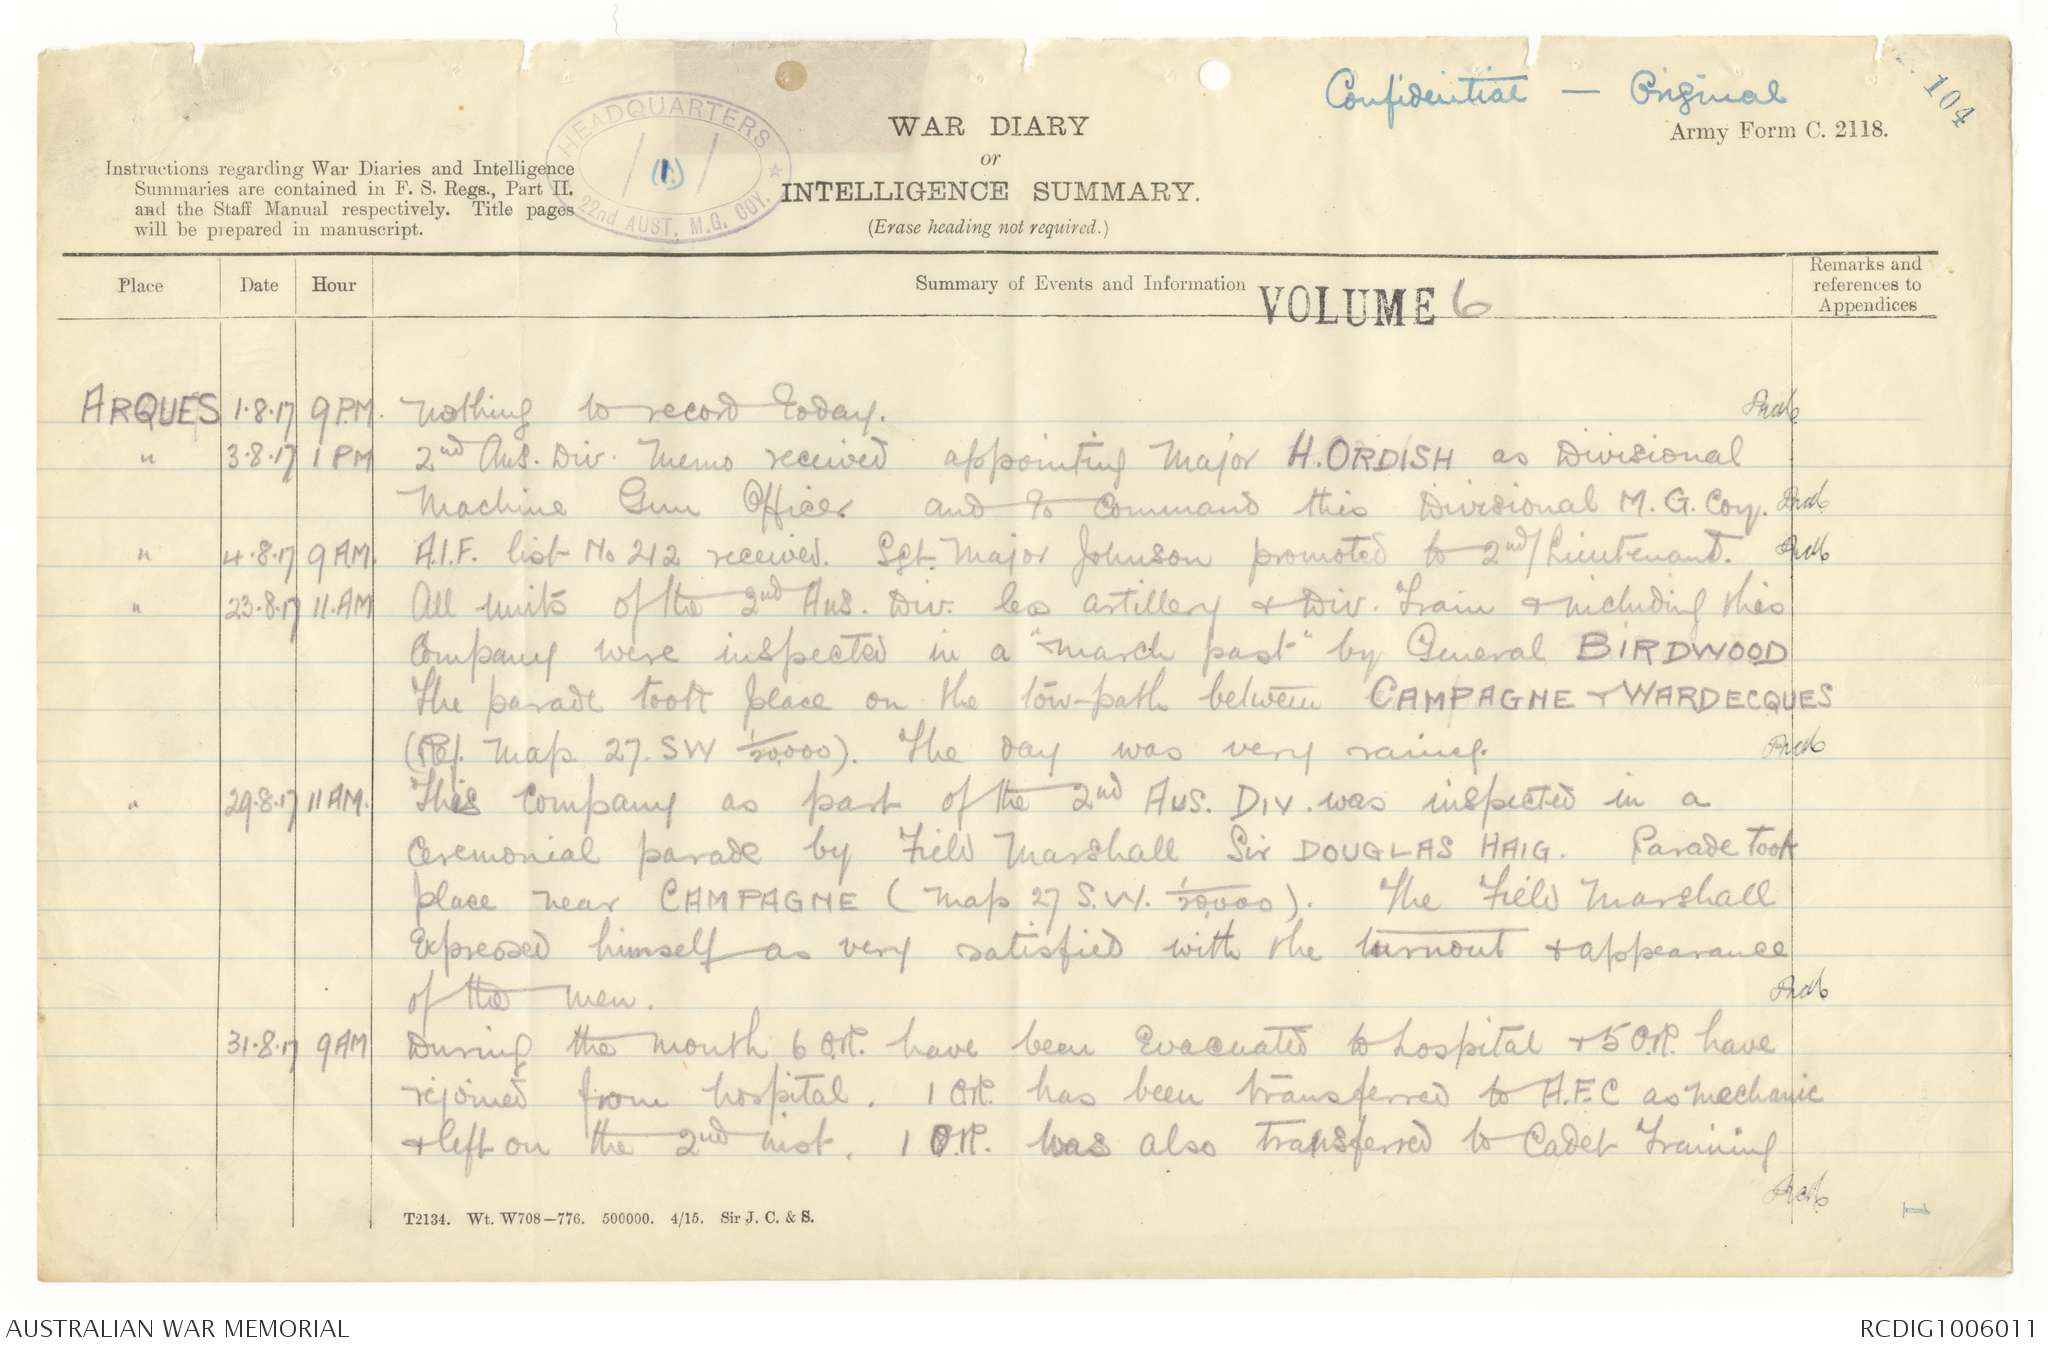 Confidential — Original
104
Army Form C. 2118.
WAR DIARY
or
INTELLIGENCE SUMMARY.
(Erase heading not required.)
Instructions regarding War Diaries and Intelligence
Summaries are contained in F. S. Regs., Part II.
and the Staff Manual respectively. Title pages
will be prepared in manuscript.
HEADQUARTERS
(1.)
22nd AUST. M.G. COY.
Place Date Hour Summary of Events and Information Remarks and references to Appendices
VOLUME 6
ARQUES 1.8.17 9 P.M. Nothing to record today.
" 3.8.17 1 PM 2nd Aus. Div. Memo received appointing Major H. ORDISH as Divisional
Machine Gun Officer and to command this Divisional M. G. Coy.
" 4.8.17 9 AM. A.I.F. list No 212 received. Sgt. Major Johnson promoted to 2nd/Lieutenant.
" 23.8.17 11.AM All units of the 2nd Aus. Div. less artillery & Div. Train & including this
Company were inspected in a "march past" by General BIRDWOOD
The parade took place on the tow-path between CAMPAGNE & WARDECQUES
(Ref. Map 27. SW 1/20,000). The day was very rainy.
" 29.8.17 11 AM. This Company as part of the 2nd AUS. DIV. was inspected in a
Ceremonial parade by Field Marshall Sir DOUGLAS HAIG. Parade took
place near CAMPAGNE (Map 27 S.W. 1/20,000). The Field Marshall
Expressed himself as very satisfied with the turnout & appearance
of the men.
31.8.17 9 AM During the month 6 O.R. have been Evacuated to hospital & 5 O.R. have
rejoined from hospital. 1 O.R. has been transferred to A.F.C as mechanic
& left on the 2nd inst. 1 O.R. was also transferred to Cadet Training
T2134. Wt. W708—776. 500000. 4/15. Sir J. C. & S.
AUSTRALIAN WAR MEMORIAL
RCDIG1006011